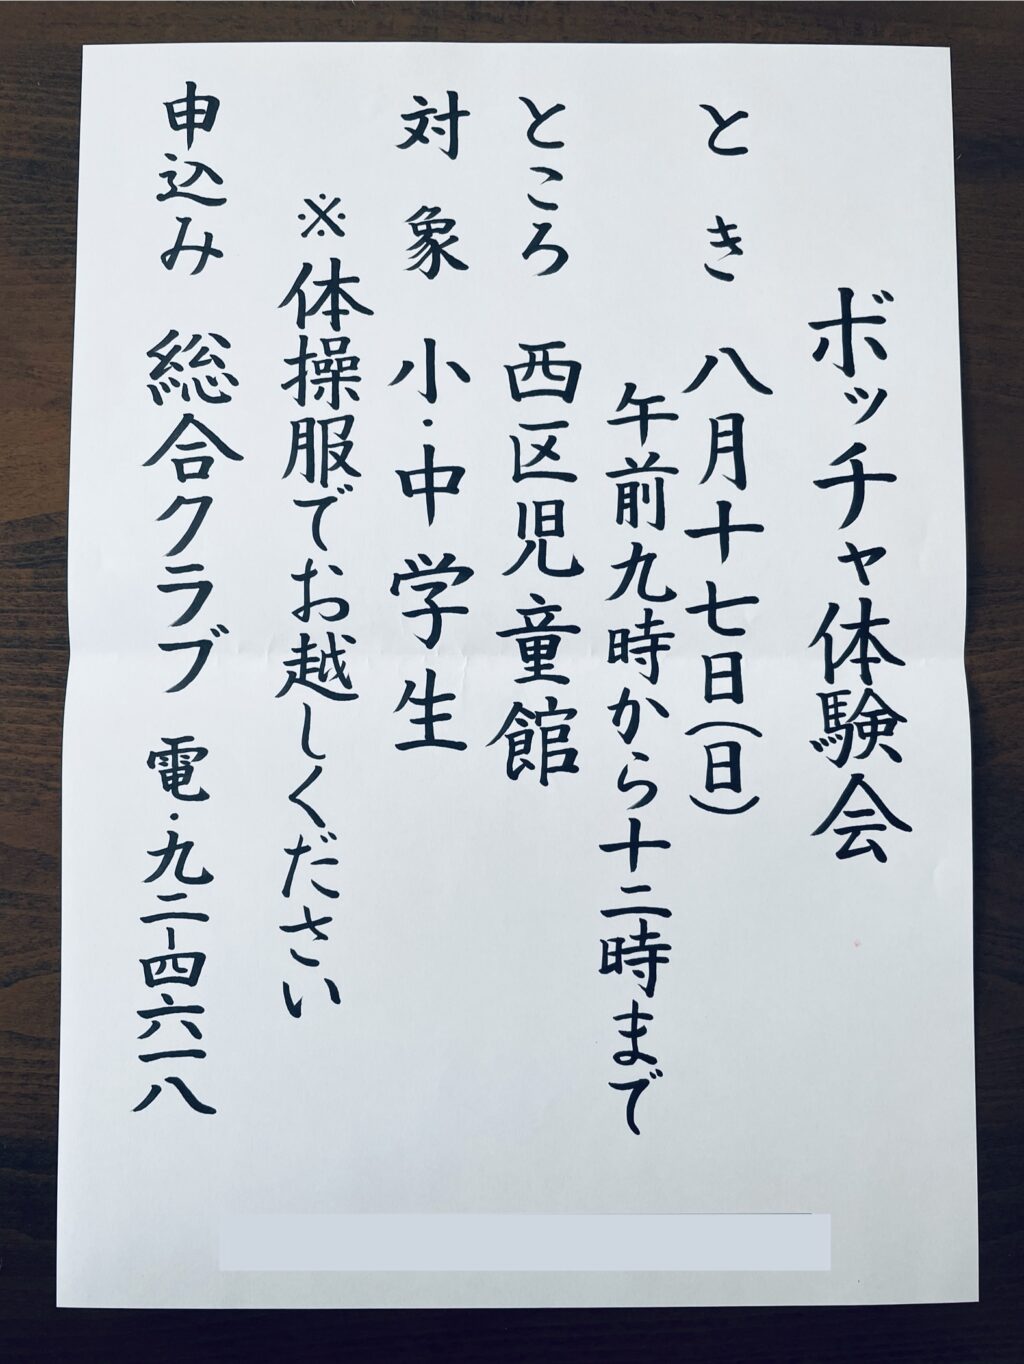 ボッチャ体験会
とき 八月十七日(日)
午前九時から十二時まで
ところ 西区児童館
対象 小・中学生
※体操服でお越しください
申込み 総合クラブ 電・九二-四六一八